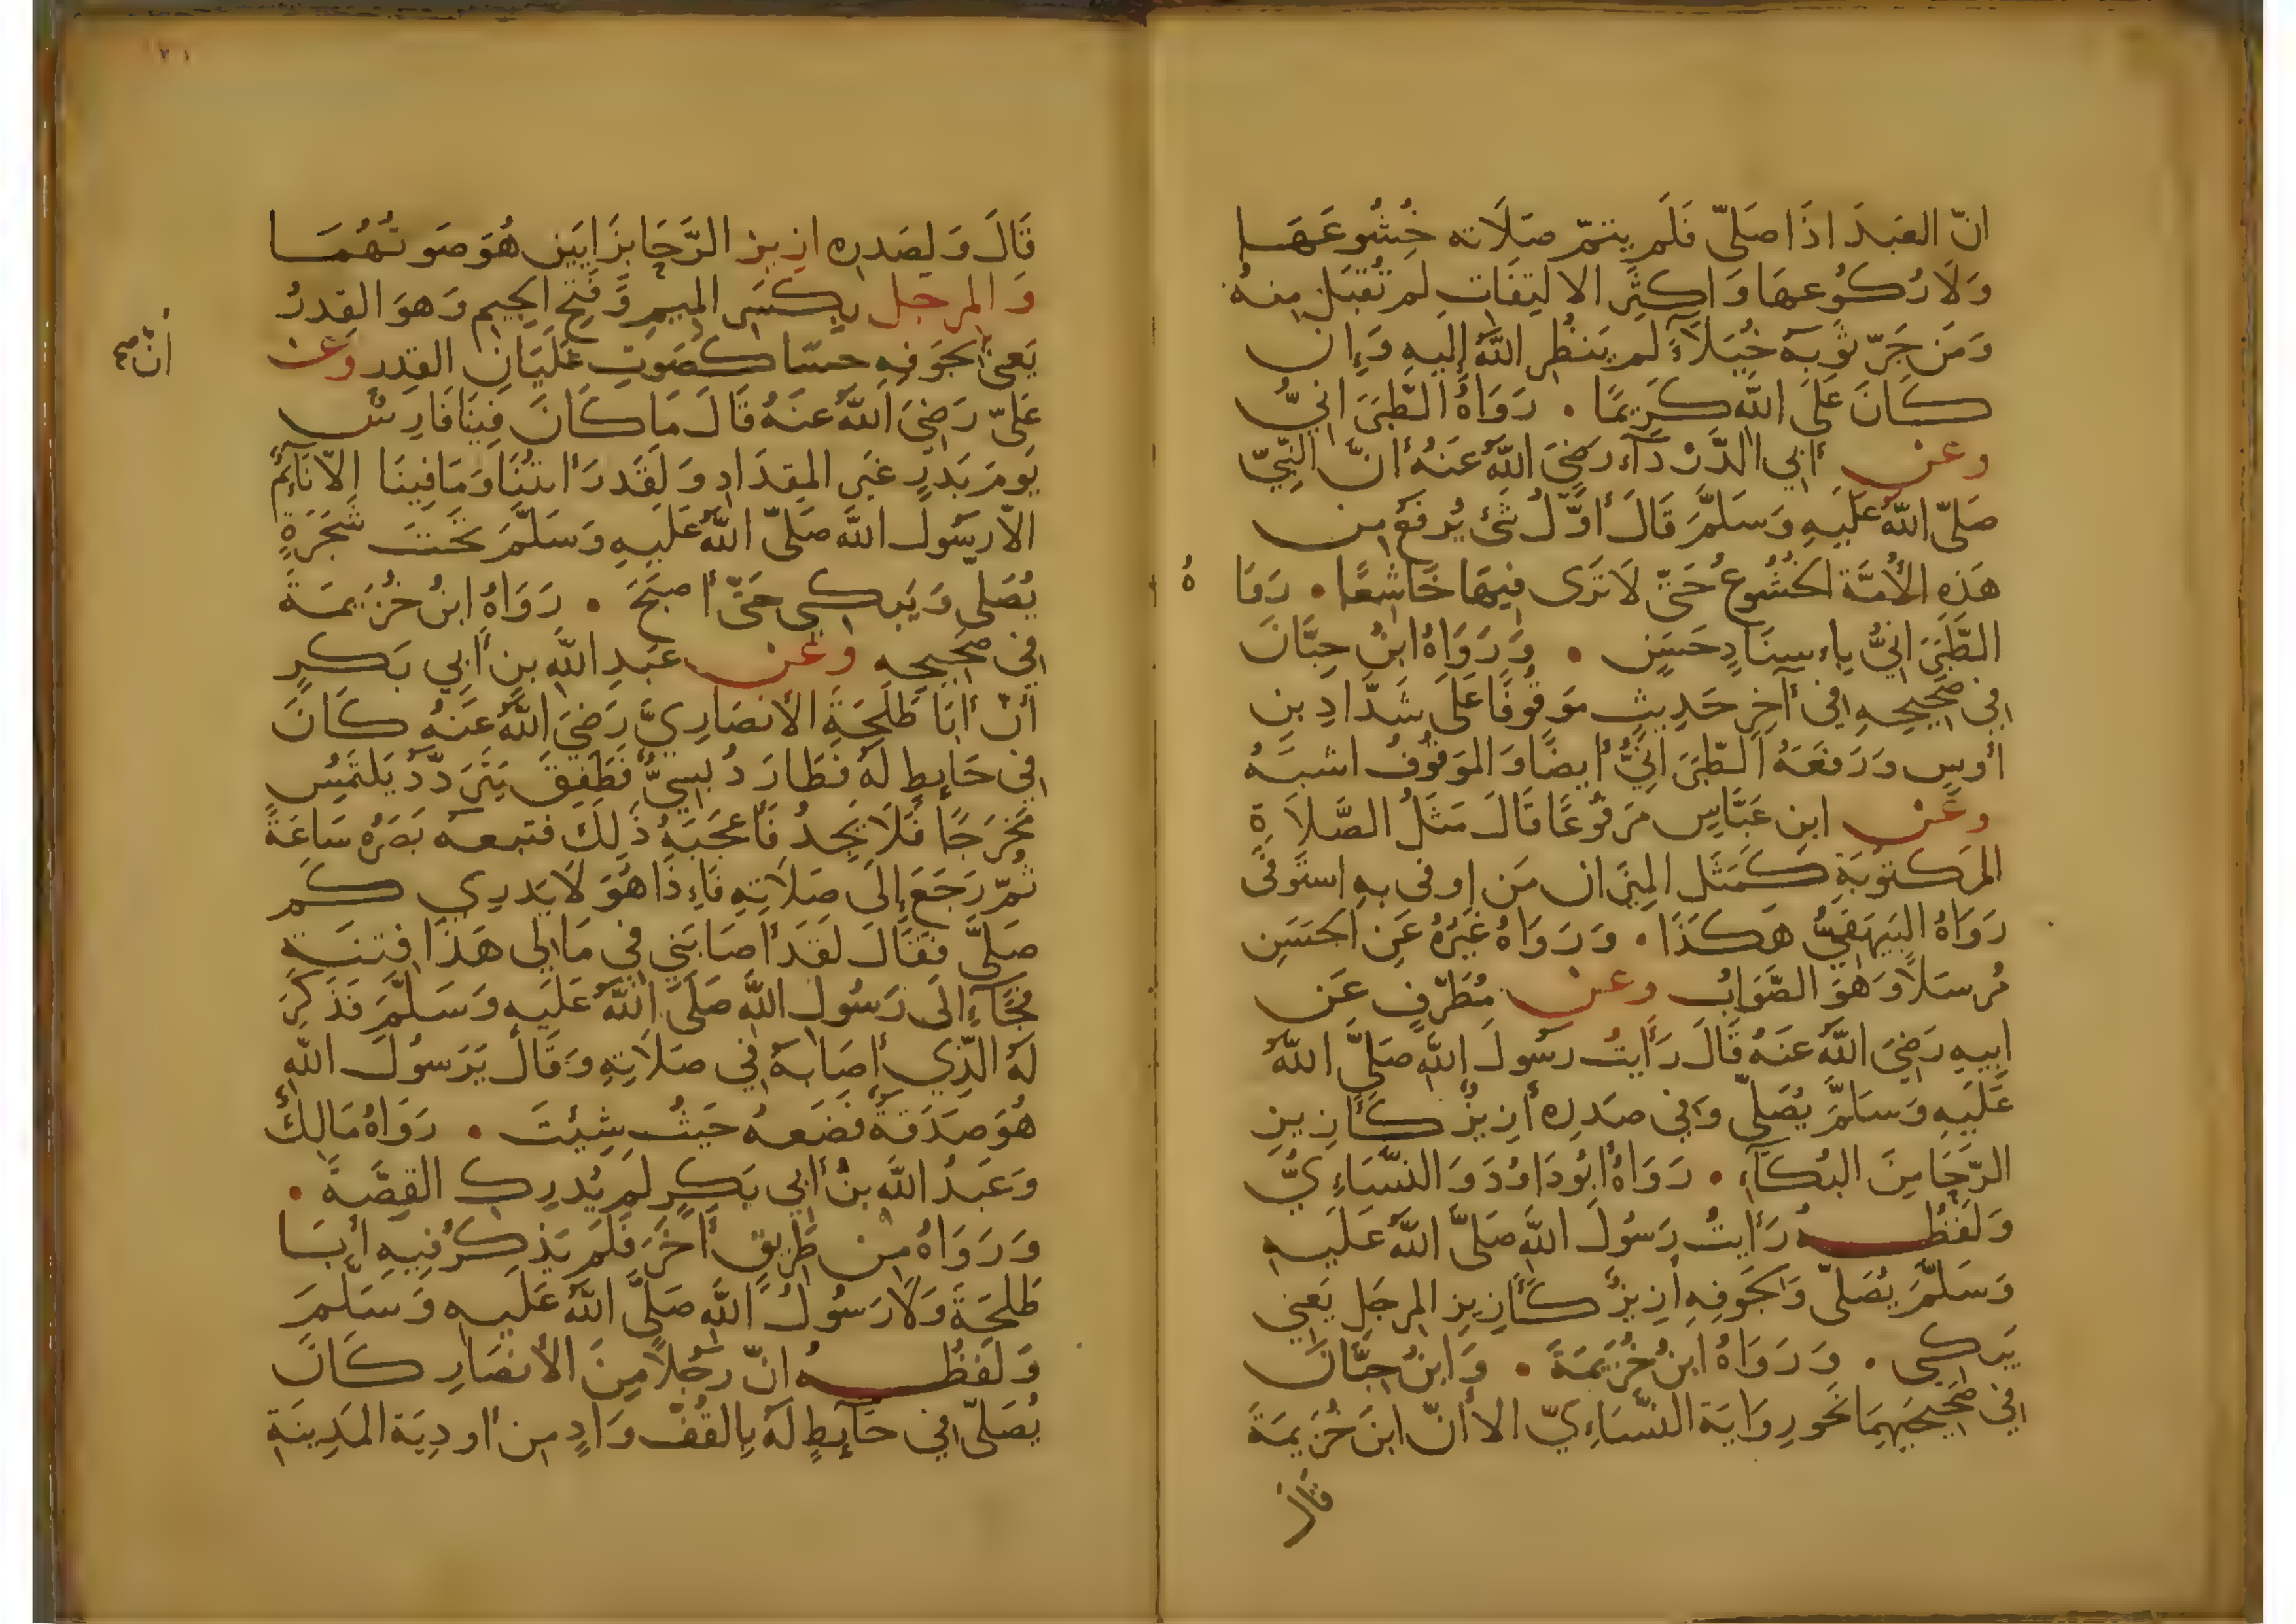 انّ العَبدَ اذَا صَلّى فَلَم يتمّ صَلَاته خُشُوعَهَا
وَلَا رُكُوعهَا وَاكثَرِ الالتِفَاتِ لم تُقبَل مِنهُ
وَمَن جَرّ ثَوبَه خُيَلَآءَ لم يَنظُرِ اللهُ إليهِ وَإِن
كَانَ عَلَى اللهِ كَرِيمًا . رَوَاهُ الطّبَرَانِيُّ
وعن أبي الدَّرْدَآء رَضِيَ اللهُ عَنهُ أنَّ النّبِيّ
صَلّى اللهُ عَلَيهِ وَسَلَّمَ قَالَ أوَّلُ شَئ يُرفَعُ مِن
هَذِهِ الأُمَّة الخُشُوعُ حَتّى لَا تَرَى فِيهَا خَاشِعًا . رَوَا هُ
الطَّبَرَانِيُّ بإِسنَادٍ حَسَنٍ . وَرَوَاهُ ابنُ حِبَّانَ
فِي صَحِيحِهِ فِي آخِرِ حَدِيثٍ مَوقُوفًا عَلَى شَدَّادِ بنِ
أوسٍ وَرَفَعَهُ الطّبَرَانِيُّ أيضًا وَالمَوقُوفُ اشبَهُ
وعَن ابنِ عَبَّاسٍ مَرفُوعًا قَالَ مَثَلُ الصَّلَاةِ
المَكتُوبَةِ كَمَثَلِ المِيزَان مَن اوفى بهِ استَوفَى
رَوَاهُ البَيهَقِيُّ هَكَذَا . وَرَوَاهُ غَيرُهُ عَنِ الحَسَنِ
مُرسَلًا وَهوَ الصَّوَابُ وعن مُطَرّفٍ عَن
ابِيهِ رَضِيَ اللهُ عَنهُ قَالَ رَأَيتُ رسُولَ اللهِ صَلَّى اللهُ
عَلَيهِ وَسَلَّمَ يُصَلّي وَفي صَدرِه أزِيزٌ كَأزِيزِ
الرَّحَا مِنَ البُكَآءِ . رَوَاهُ ابُو دَاوُدَ وَالنَّسَاءِيُّ
وَلَفظُه رَأيتُ رَسُولَ اللهِ صَلَّى اللهُ عَلَيهِ
وَسَلَّمَ يُصَلّى وَلجَوفِهِ ازِيزٌ كَأزِيزِ المِرجَلِ يَعنِي
يَبكي . وَرَوَاهُ ابنُ خُزَيمَةَ . وَابنُ حِبَّانَ
فِي صَحِيحَيهِمَا نَحو رِوَايَة النَّسَاءِيّ الا أنّ ابنَ خُزَيمَةَ
قال
٢٠١
قَالَ وَلِصَدرِه ازيز الرَّحَا بزَايَين هُوَ صَوتُهُمَا
وَالمرجل بِكَسرِ المِيمِ وَفَتحِ الجِيمِ وَهوَ القِدرُ
يَعنى لجَوفِهِ حسّا كَصَوتِ غَلَيَانِ القِدرِ وعَن
عَلىّ رَضِيَ اللهُ عَنهُ قَالَ مَا كَانَ فِينَا فَارِسٌ
يَومَ بَدرٍ غَيرَ المِقدَادِ وَلَقَد رَأيتُنَا وَمَا فِينَا إلّا نَائِمٌ
الّا رَسُولَ اللهِ صَلّى اللهُ عَلَيهِ وَسَلَّمَ تَحتَ شَجَرَةٍ
يُصَلّي وَيَبكي حَتّى أصبَحَ . رَوَاهُ ابنُ خُزَيمَةَ
فِي صَحِيحِهِ وعَن عَبدِ اللهِ بنِ أبِي بَكرٍ
أنّ أبَا طَلحَةَ الأنصَارِيَّ رَضِيَ اللهُ عَنهُ كَانَ
فِي حَايطٍ لَهُ فَطَارَ دُبسِيٌّ فَطَفِقَ يَتَرَدّدُ يَلتَمِسُ
مَخرَجًا فَلَا يَجِدُ فَأعجَبَهُ ذَلِكَ فتبعه بَصَرُه سَاعَةً
ثُمّ رَجَعَ إلَى صَلَاتِهِ فَإِذَا هُوَ لَا يَدرِي كَم
صَلَّى فَقَالَ لَقَد أصَابَتنِي فِي مَالِي هَذَا فِتنَة
فَجَآءَ إلَى رَسُولِ اللهِ صَلَّى اللهُ عَلَيهِ وَسَلَّمَ فَذَكَرَ
لَهُ الّذِي أصَابَهُ فِي صَلَاتِهِ وَقَالَ يَرَسُولَ اللهِ
هُوَ صَدَقَةٌ فَضَعهُ حَيثُ شِئتَ . رَوَاهُ مَالِكٌ
وَعَبدُ اللهِ بنُ أبِي بَكرٍ لَم يُدرِكِ القِصَّةَ .
وَرَوَاهُ مِن طَرِيقٍ أُخرَى فَلَم يَذكُر فِيهِ أبَا
طَلحَةَ وَلَا رَسُولَ اللهِ صَلَّى اللهُ عَلَيهِ وَسَلَّمَ
وَلَفظُه انّ رَجُلًا مِنَ الأنصَارِ كَانَ
يُصَلّي فِي حَآيطٍ لَهُ بِالقُفّ وَادٍ مِن أودِيَة المَدِينَةِ
انّ صح